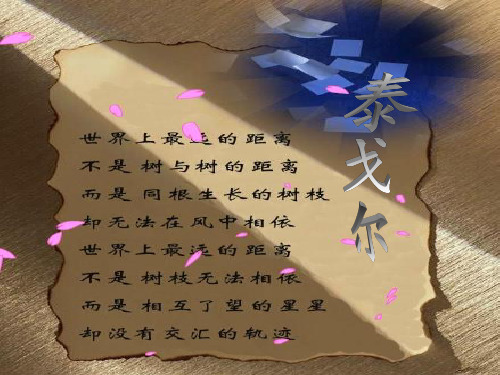 世界上最远的距离
不是树与树的距离
而是同根生长的树枝
却无法在风中相依
世界上最远的距离
不是树枝无法相依
而是相互了望的星星
却没有交汇的轨迹
泰戈尔